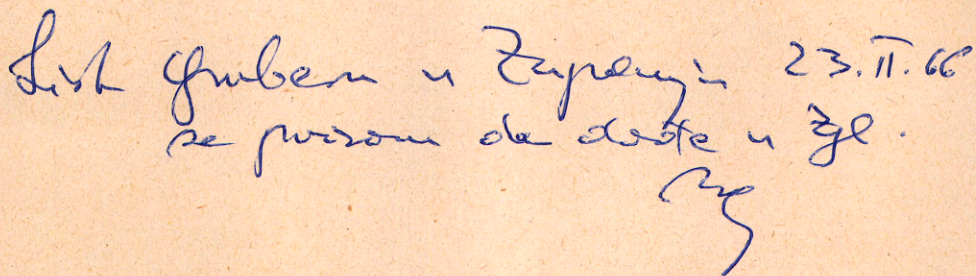 List Gruberu u Županju 23.II.66
sa pozivom da dođe u Zgb.